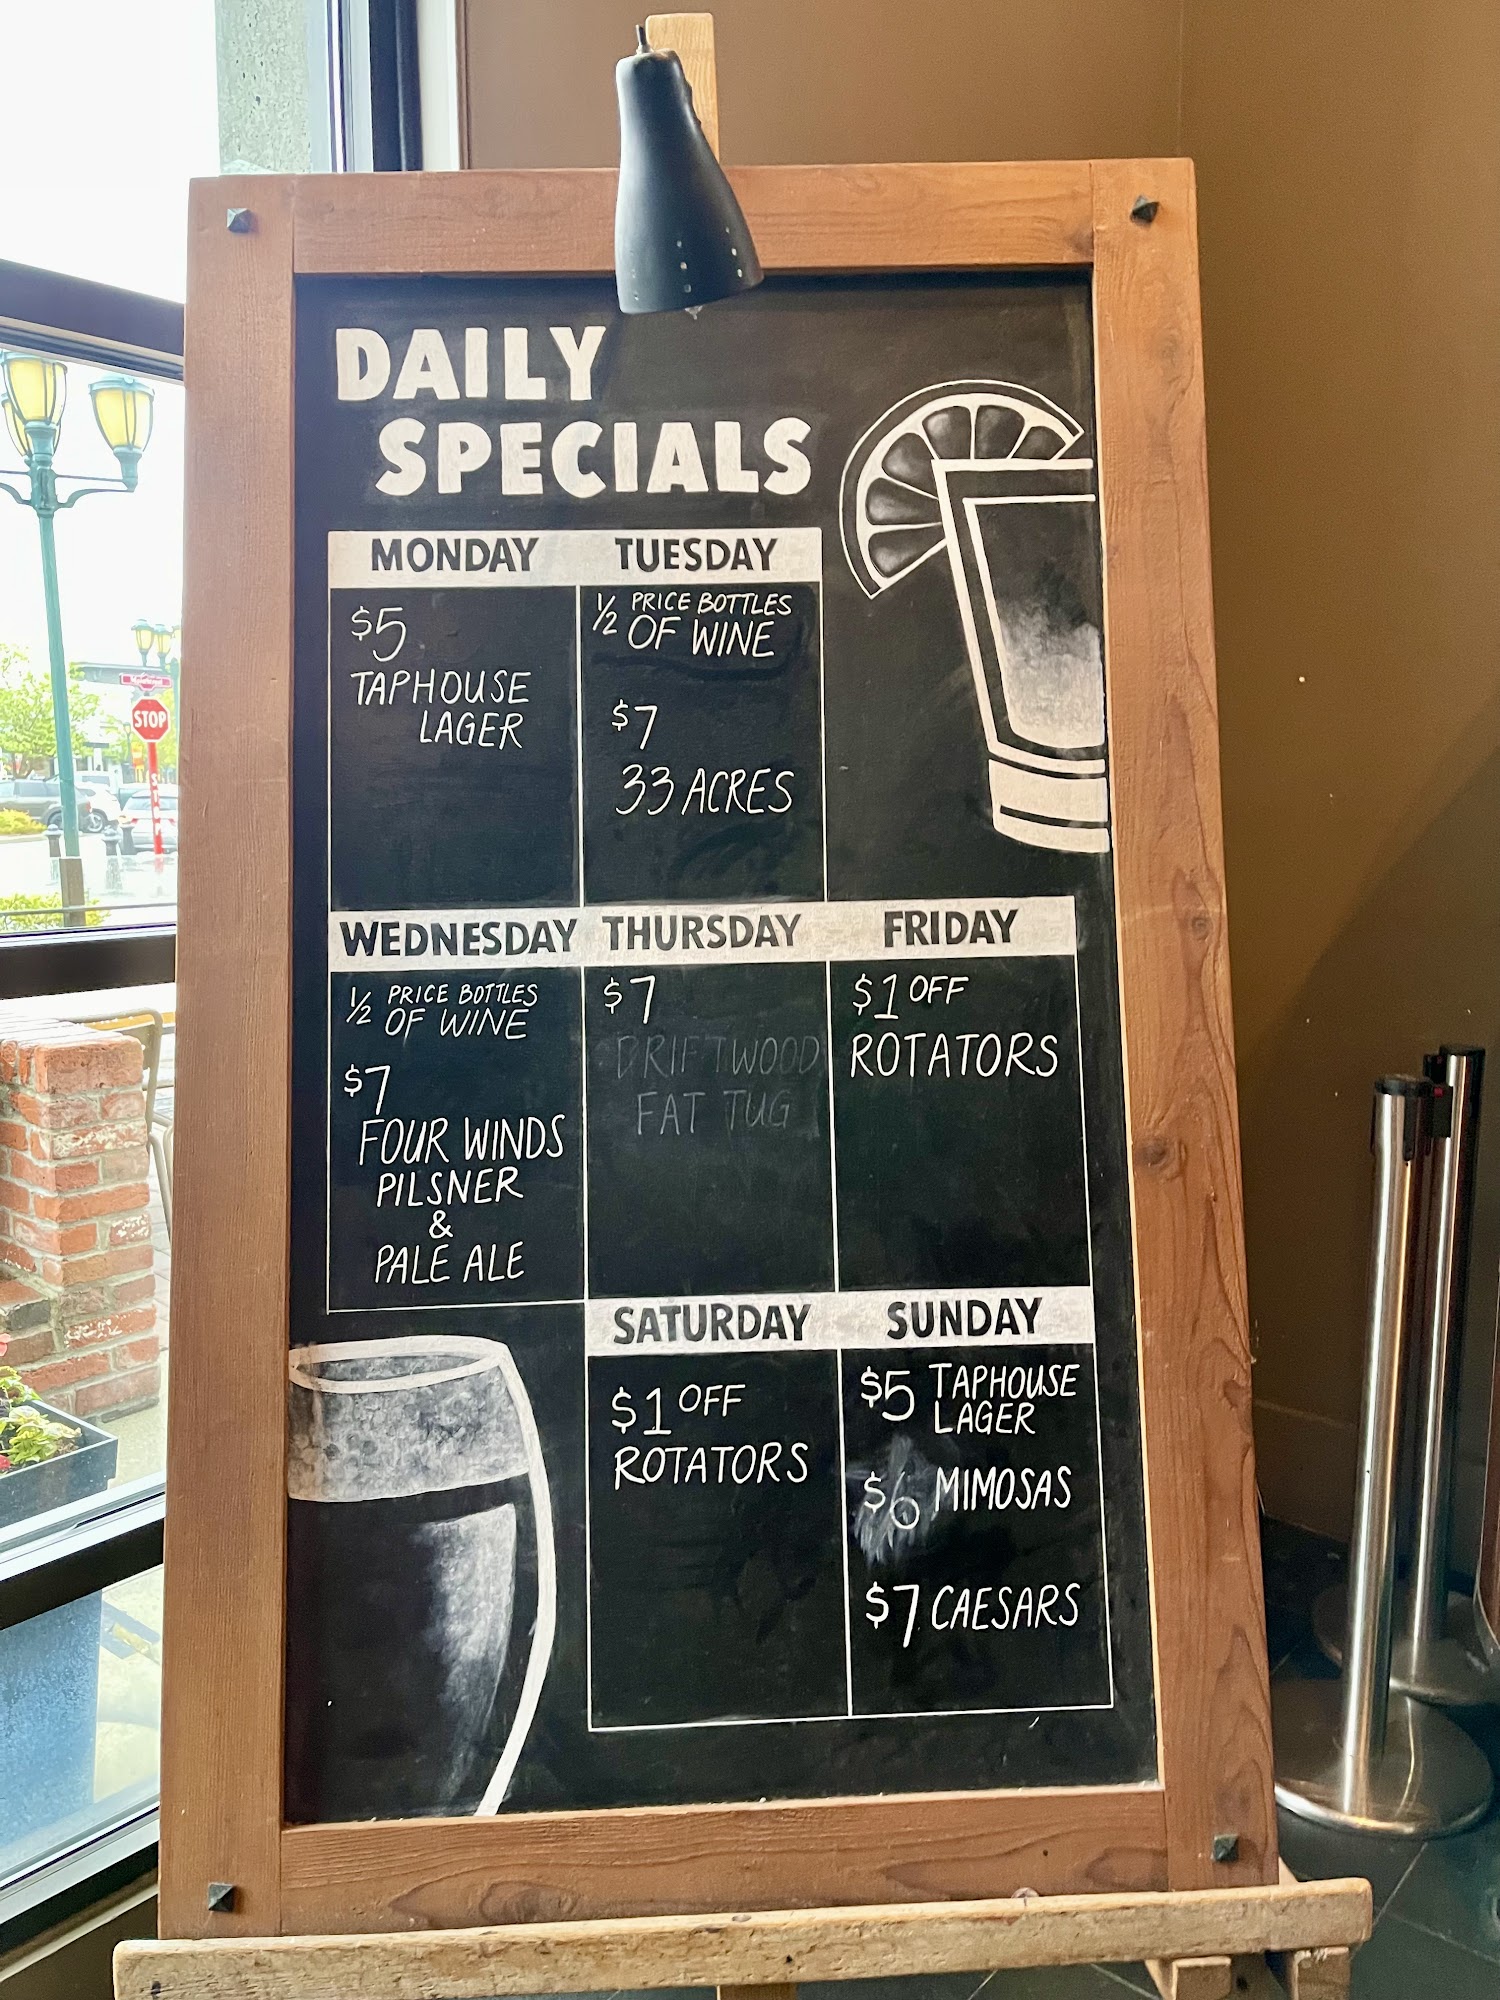 DAILY
SPECIALS
MONDAY
$5
TAPHOUSE
LAGER
TUESDAY
1/2 PRICE BOTTLES
OF WINE
$7
33 ACRES
WEDNESDAY
1/2 PRICE BOTTLES
OF WINE
$7
FOUR WINDS
PILSNER
&
PALE ALE
THURSDAY
$7
DRIFTWOOD
FAT TUG
FRIDAY
$1 OFF
ROTATORS
SATURDAY
$1 OFF
ROTATORS
SUNDAY
$5 TAPHOUSE
LAGER
$6 MIMOSAS
$7 CAESARS
STOP